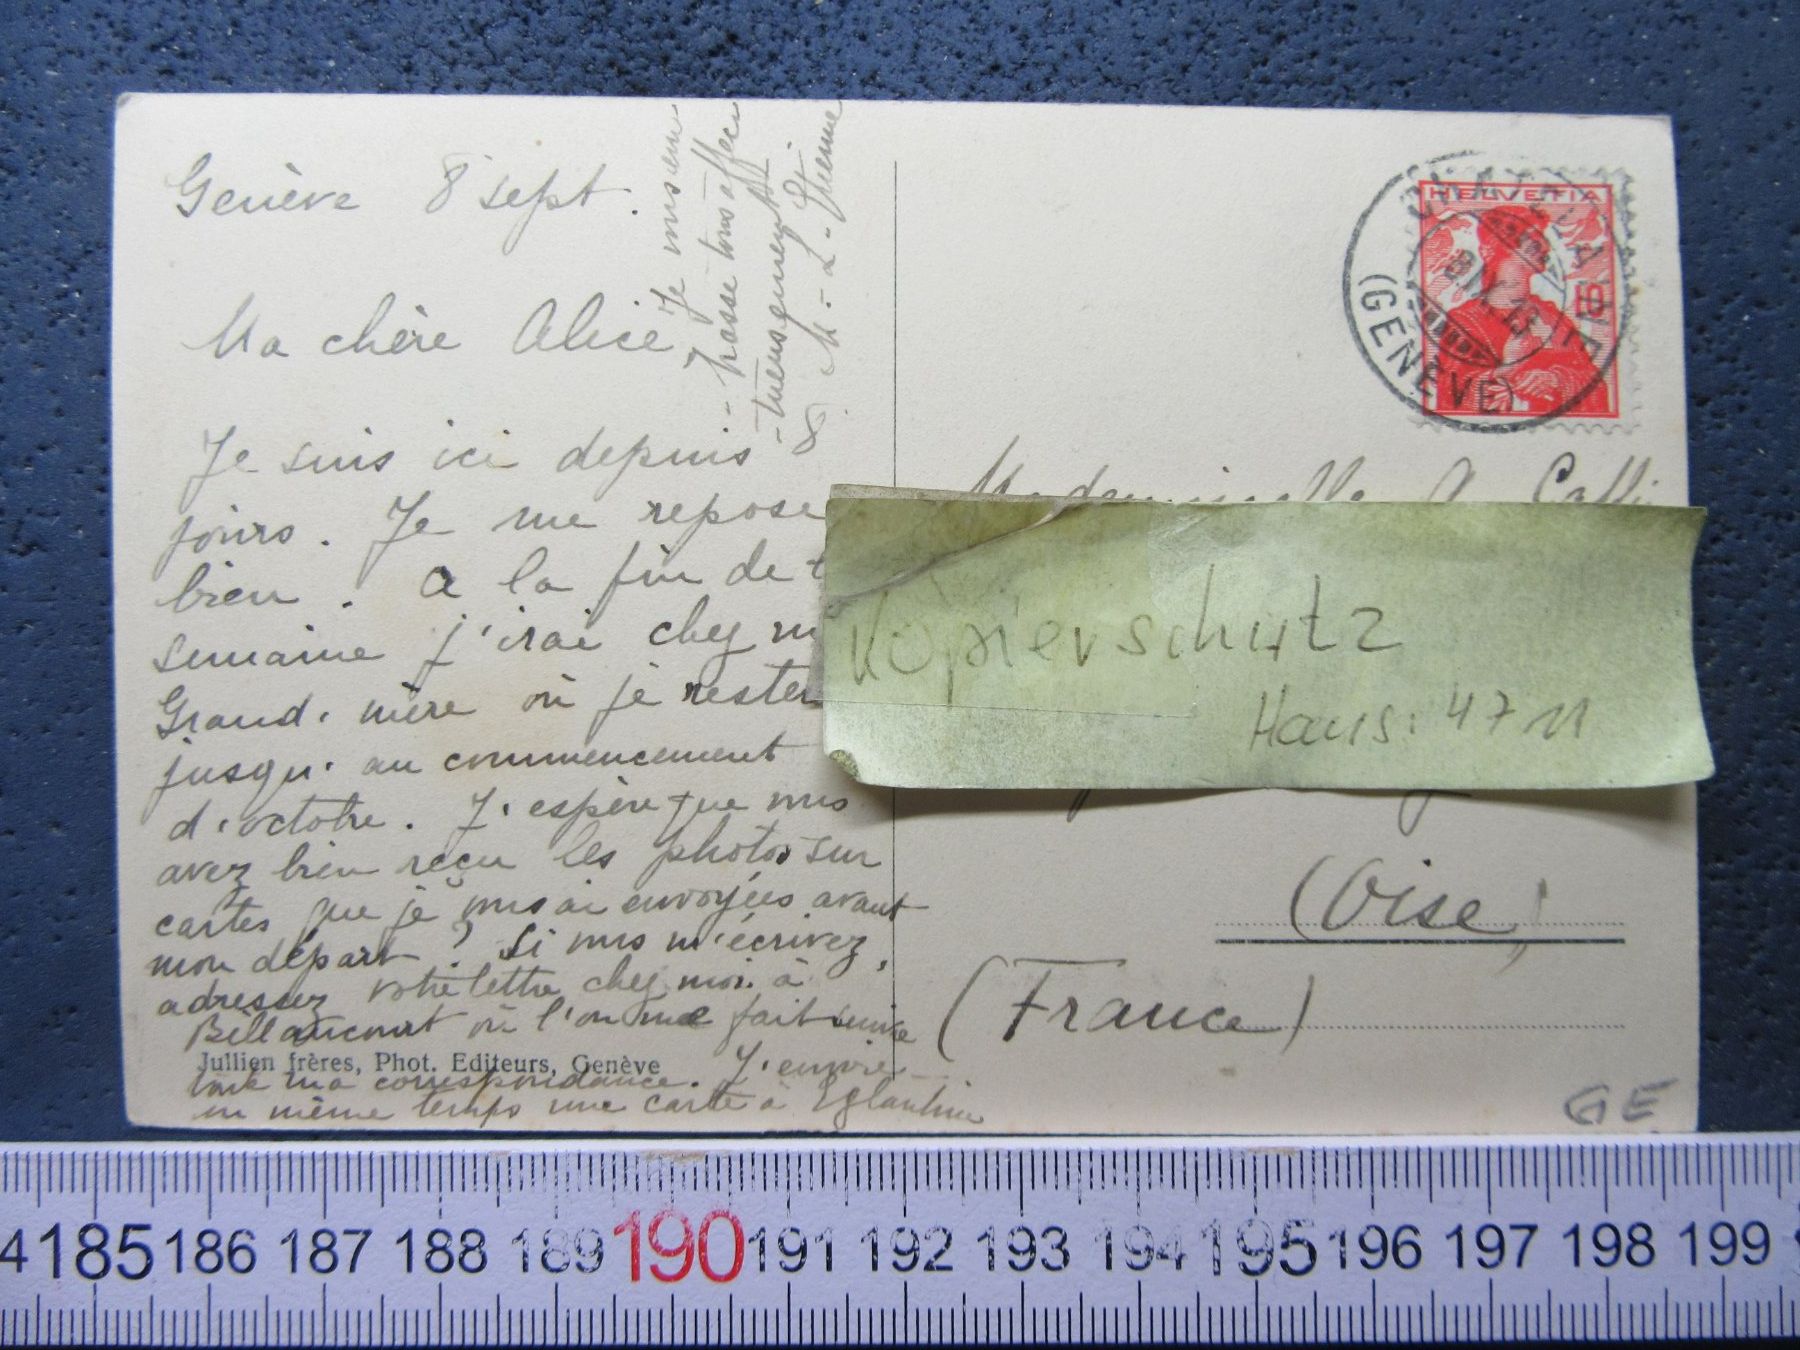 Genève 8 sept.
Ma chère Alice
Je suis ici depuis
jours. Je me repose
bien. A la fin de
semaine j'irai chez
Grand-mère où je rester
jusqu'au commencement
d'octobre. J'espère que vous
avez bien reçu les photos sur
cartes que je vous ai envoyées avant
mon départ? Si vous m'écrivez,
adressez votre lettre chez moi à
Bellaucourt où l'on me fait suivre
Jullien frères, Phot. Editeurs, Genève
toute ma correspondance. J'envoie
en même temps une carte à Eglantine
Je vous em
-brasse tous affec
-tueusement
M.-L.
HELVETIA
CHATELAINE
8.IX.13
(GENÈVE)
Mademoiselle A.
Kopierschutz
Haus: 4711
(Oise)
(France)
GE
185 186 187 188 189 190 191 192 193 194 195 196 197 198 199